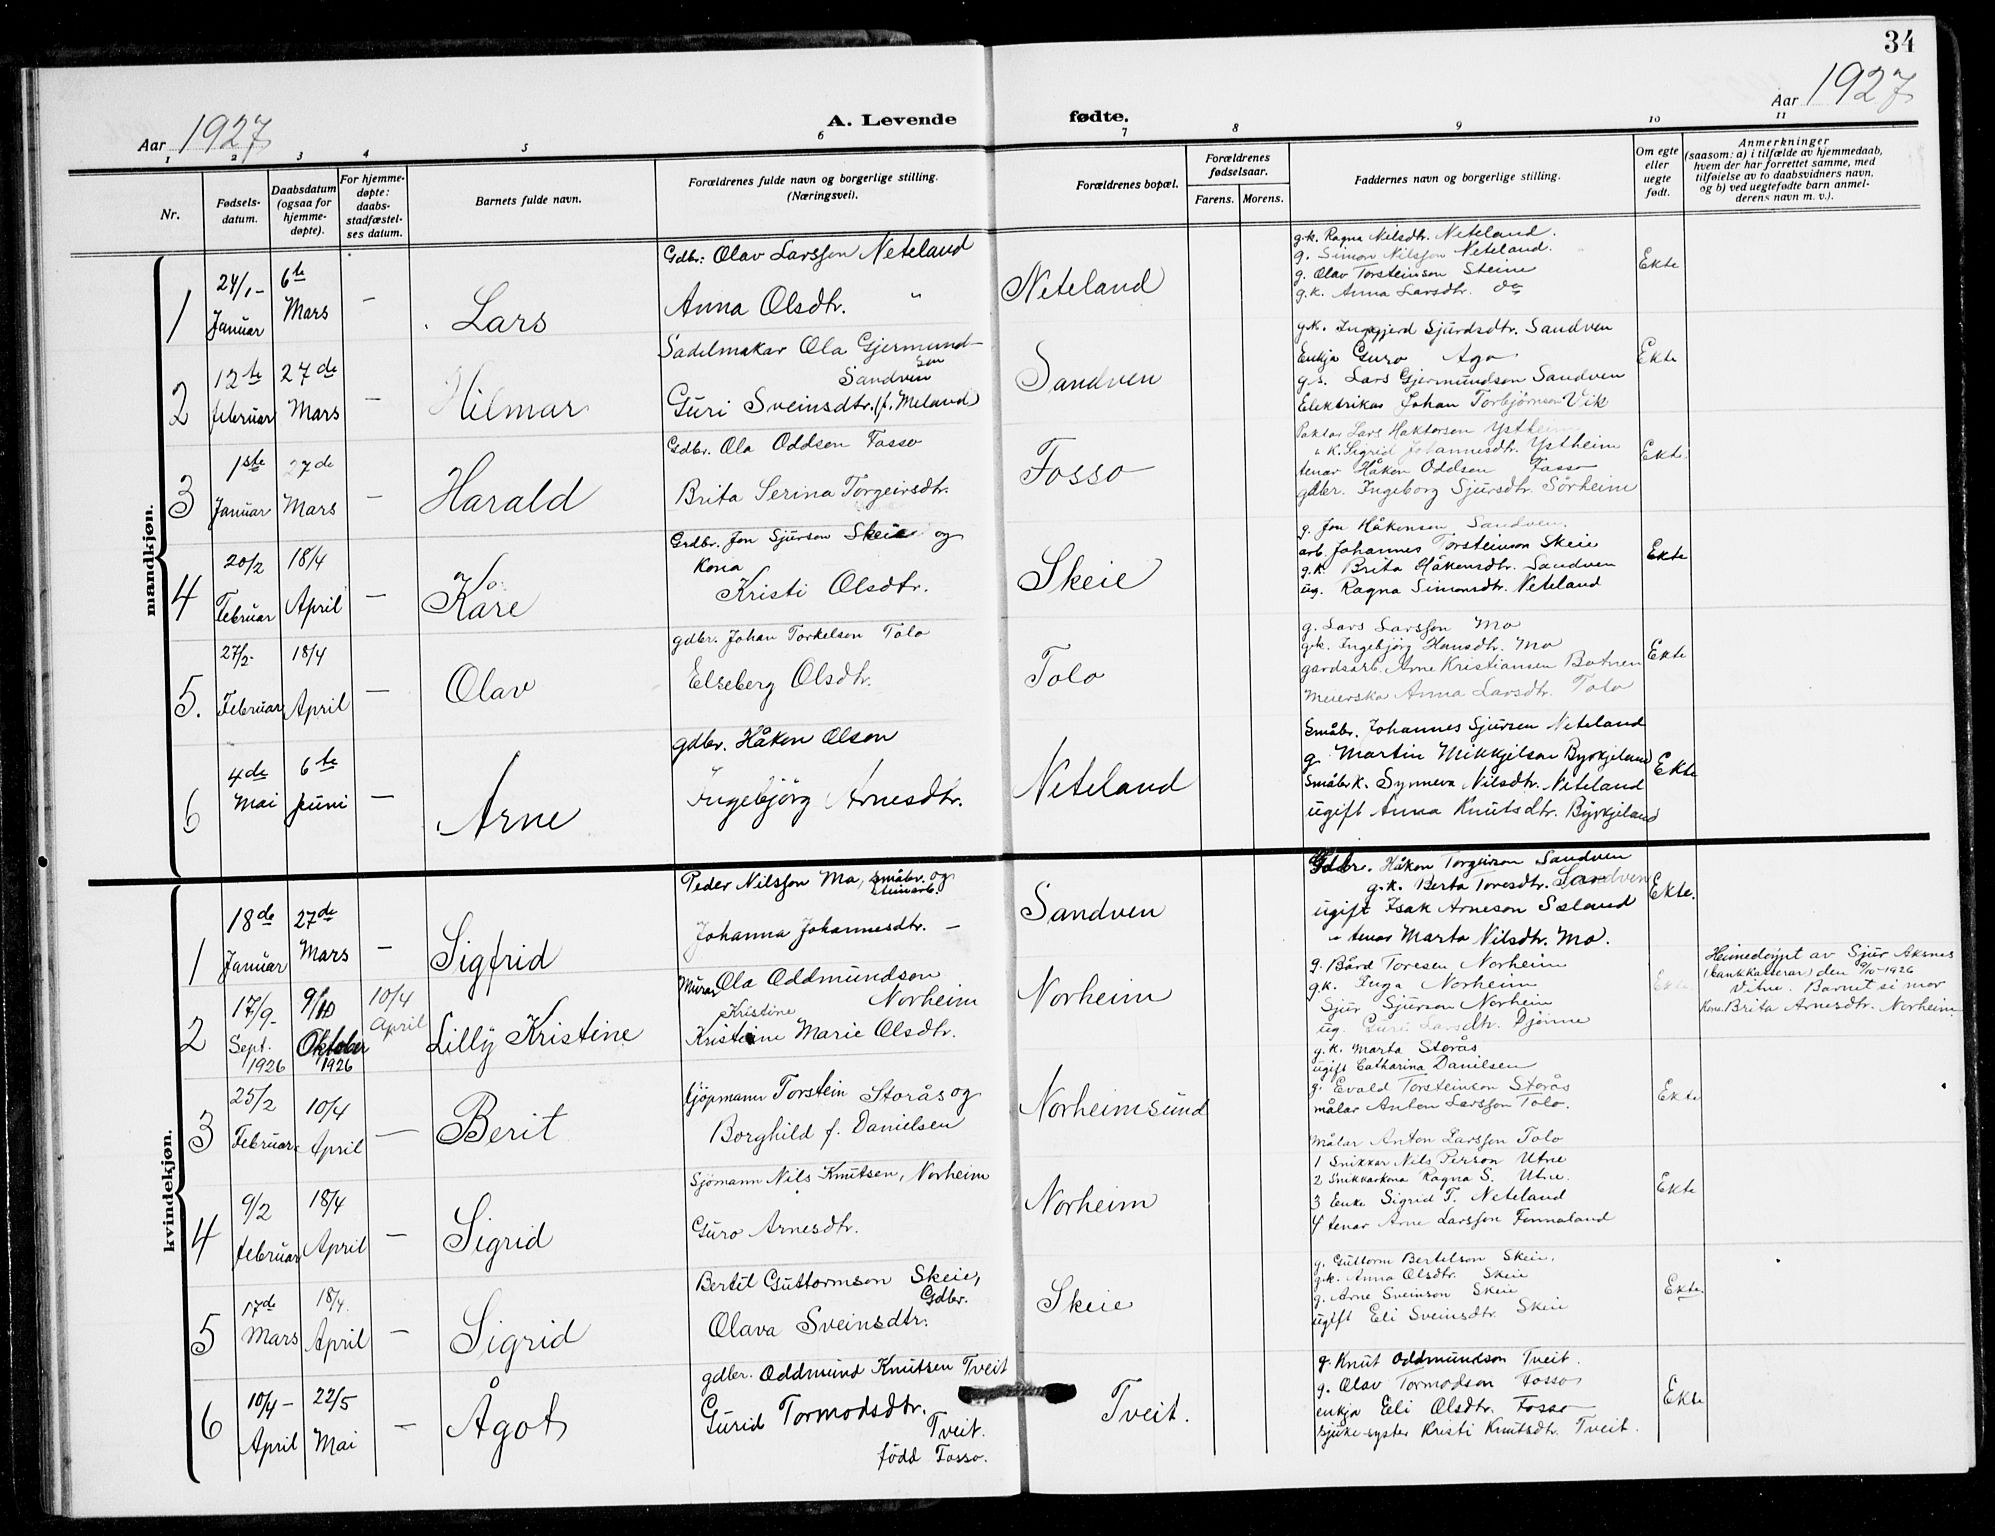 34
Aar 1927
A. Levende fødte.
Aar 1927
1 2 3 4 5 6 7 8 9 10 11
Nr.
Fødsels-
datum.
Daabsdatum
(ogsaa for
hjemme-
døpte).
For hjemme-
døpte:
daabs-
stadfæstel-
ses datum.
Barnets fulde navn.
Forældrenes fulde navn og borgerlige stilling.
(Næringsvei).
Forældrenes bopæl.
Forældrenes
fødselsaar.
Farens. Morens.
Faddernes navn og borgerlige stilling.
Om egte
eller
uegte
født.
Anmerkninger
(saasom: a) i tilfælde av hjemmedaab,
hvem der har forrettet samme, med
tilføielse av to daabsvidners navn,
og b) ved uegtefødte barn anmel-
derens navn m. v.).
mandkjøn.
1
24/1-
Januar
6te
Mars
-
Lars
Gdbr. Olav Larsson Neteland
Anna Olsdtr. "
Neteland
g.k. Ragna Nilsdtr. Neteland.
g. Simon Nilsson Neteland.
g. Olav Torsteinson Steine
g.k. Anna Larsdtr. do
Ekte
2
12te
februar
27de
Mars
-
Hilmar
Sadelmakar Ola Gjermund-
son
Sandven
Guri Sveinsdtr. (f. Meland)
Sandven
g.k. Ingegjerd Sjursdtr. Sandven
Enkja Guro Aga
g.s. Lars Gjermundson Sandven
Elektrikar Johan Torbjørnson Vik
Ekte
3
1ste
Januar
27de
Mars
-
Harald
Gdbr. Ola Oddson Fosso
Brita Serina Torgeirsdtr.
Fosso
Lars Haktorson Ystheim
" K. Sigrid Johannesdtr. Ystheim
tenar Håkon Oddson Fosso
gdbr. Ingeborg Sjursdtr. Sørheim
Ekte.
4
20/2
Februar
18/4
April
-
Kåre
Grdbr. Jon Sjurson Skeie og
Kona
Kristi Olsdtr.
Skeie
g. Jon Håkonson Sandven.
arb. Johannes Torsteinson Skeie
g.k. Brita Håkonsdtr. Sandven
ug. Ragna Simonsdtr. Neteland
Ekte
5.
27/2.
Februar
18/4
April
-
Olav
gdbr. Johan Torkelson Tolo
Elseberg Olsdtr.
Tolo
g. Lars Larsson Mo
g.k. Ingebjörg Hansdtr. Mo
gardsarb. Arne Kristiansen Botnen
Meierska Anna Larsdtr. Tolo
Ekte
6
4de
Mai
6te
juni
-
Arne
gdbr. Håkon Olson
Ingebjörg Arnesdtr.
Neteland
Småbr. Johannes Sjursen Neteland
g. Martin Mikkjelson Byrkjeland
Småbr.k. Synneva Nilsdtr. Neteland
ugift Anna Knutsdtr. Byrkjeland
Ekte
kvindekjøn.
1
18de
Januar
27de
Mars
-
Sigfrid
Peder Nilsson Mo, småbr. og
steinarb.
Johanna Johannesdtr. -
Sandven
Gdbr. Håkon Torgeirson Sandven
g.k. Berta Toresdtr. Sandven
ugift Isak Arneson Sæland
" tenar Marta Nilsdtr. Mo.
Ekte.
2
17/9-
Sept.
1926
9/10
Oktober
1926
10/4
April
Lilly Kristine
Murar Ola Oddmundson
Norheim
Kristine
Kristine Marie Olsdtr.
Norheim
g. Bård Toresen Norheim
gk. Inga Norheim
Sjur Sjurson Norheim
ug. Guri Larsdtr. Djönne
Ekte
Heimedöypt av Sjur Aksnes
(bankkasserar) den 9/10-1926
Vitne. Barnet si mor
Kona Brita Arnesdtr. Norheim
3
25/2
Februar
10/4
April
-
Berit
Kjöpmann Torstein Storås og
Borghild f. Danielsen
Norheimsund
g.k. Marta Storås
ugift Catharina Danielsen
g. Evald Torsteinson Storås
målar Anton Larsson Tolo.
Ekte
4
9/2
februar
18/4
April
-
Sigrid
Sjömann Nils Knutsen, Norheim
Guro Arnesdtr.
Norheim
Målar Anton Larsson Tolo
1 Snikkar Nils Person Utne
2 Snikkarkona Ragna S. Utne.
3 Enke Sigrid T. Neteland
4 tenar Arne Larsson Fonnaland
Ekte
5
17de
Mars
18/4.
April
-
Sigrid
Bertel Guttormson Skeie,
Gdbr.
Olava Sveinsdtr.
Skeie
g. Guttorm Bertelson Skeie.
g.k. Anna Olsdtr. Skeie
g. Arne Sveinson Skeie
ugift Eli Sveinsdtr. Skeie
Ekte.
6
10/4-
April
22/5
Mai
-
Ågot
gdbr. Oddmund Knutsen Tveit
Gurid Tormodsdtr.
Tveit.
född Fosso.
Tveit.
g. Knut Oddmundson Tveit.
g. Olav Tormodson Fosso
enkja Eli Olsdtr. Fosso
sjuke-syster Kristi Knutsdtr. Tveit.
Ekte